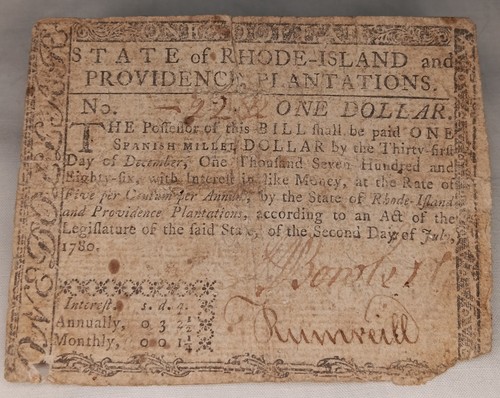 ONE DOLLAR
STATE of RHODE-ISLAND and
PROVIDENCE PLANTATIONS.
No. ONE DOLLAR.
THE Possessor of this BILL shall be paid ONE
SPANISH MILLED DOLLAR by the Thirty-first
Day of December, One Thousand Seven Hundred and
Eighty-six, with Interest in like Money, at the Rate of
Five per Centum per Annum, by the State of Rhode-Island
and Providence Plantations, according to an Act of the
Legislature of the said State, of the Second Day of July,
1780.
Interest. s. d. q.
Annually, 0 3 2½
Monthly, 0 0 1¼